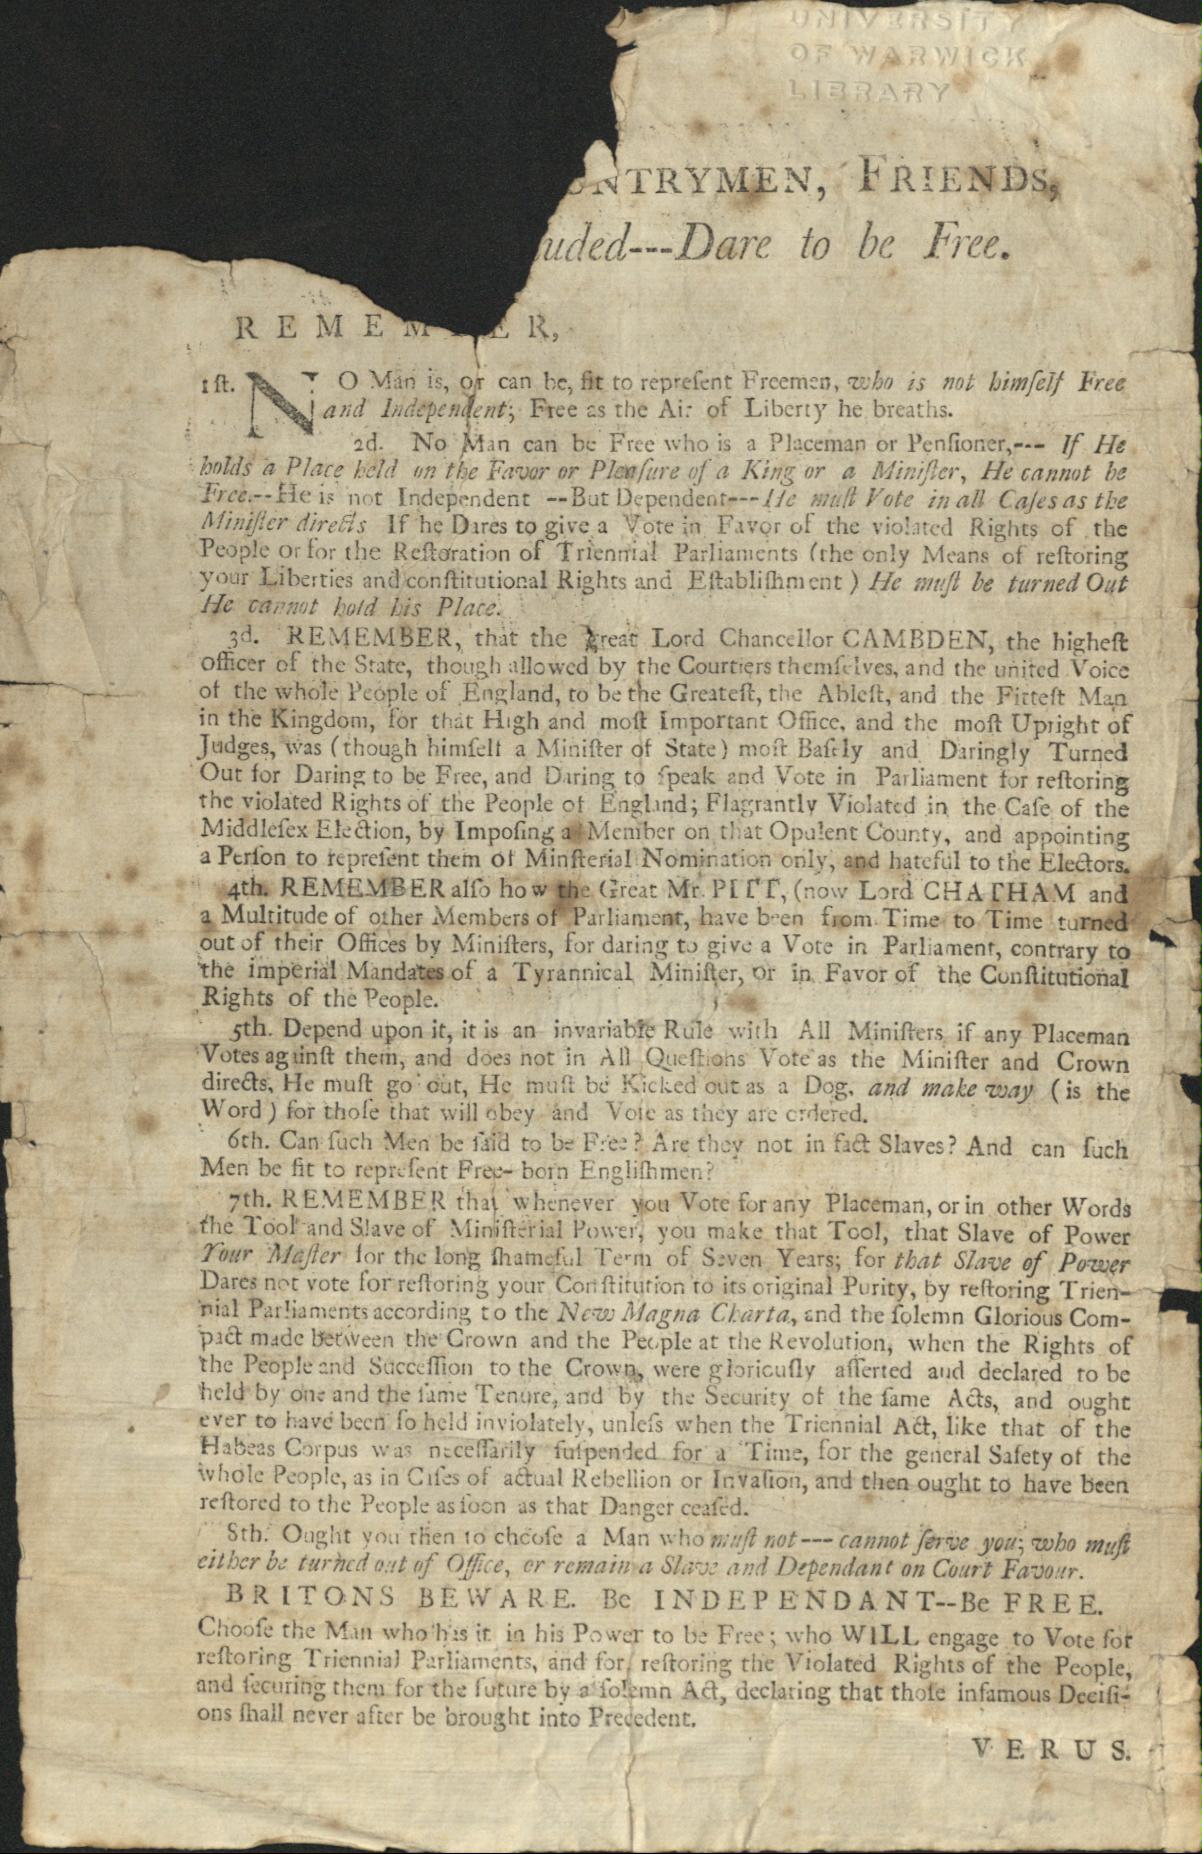 UNIVERSITY
OF WARWICK
LIBRARY
UNTRYMEN, FRIENDS,
uded---Dare to be Free.
REMEMBER,
1ſt. NO Man is, or can be, fit to repreſent Freemen, who is not himſelf Free
and Independent; Free as the Air of Liberty he breaths.
2d. No Man can be Free who is a Placeman or Penſioner,--- If He
holds a Place held on the Favor or Pleaſure of a King or a Miniſter, He cannot be
Free.--He is not Independent --But Dependent---He muſt Vote in all Caſes as the
Miniſter directs If he Dares to give a Vote in Favor of the violated Rights of the
People or for the Reſtoration of Triennial Parliaments (the only Means of reſtoring
your Liberties and conſtitutional Rights and Eſtabliſhment) He muſt be turned Out
He cannot hold his Place.
3d. REMEMBER, that the great Lord Chancellor CAMBDEN, the higheſt
officer of the State, though allowed by the Courtiers themſelves, and the united Voice
of the whole People of England, to be the Greateſt, the Ableſt, and the Fitteſt Man
in the Kingdom, for that High and moſt Important Office, and the moſt Upright of
Judges, was (though himſelf a Miniſter of State) moſt Baſely and Daringly Turned
Out for Daring to be Free, and Daring to ſpeak and Vote in Parliament for reſtoring
the violated Rights of the People of England; Flagrantly Violated in the Caſe of the
Middleſex Election, by Impoſing a Member on that Opulent County, and appointing
a Perſon to repreſent them of Minſterial Nomination only, and hateful to the Electors.
4th. REMEMBER alſo how the Great Mr. PITT, (now Lord CHATHAM and
a Multitude of other Members of Parliament, have been from Time to Time turned
out of their Offices by Miniſters, for daring to give a Vote in Parliament, contrary to
the imperial Mandates of a Tyrannical Miniſter, or in Favor of the Conſtitutional
Rights of the People.
5th. Depend upon it, it is an invariable Rule with All Miniſters if any Placeman
Votes againſt them, and does not in All Queſtions Vote as the Miniſter and Crown
directs, He muſt go out, He muſt be Kicked out as a Dog, and make way (is the
Word) for thoſe that will obey and Vote as they are ordered.
6th. Can ſuch Men be ſaid to be Free? Are they not in fact Slaves? And can ſuch
Men be fit to repreſent Free-born Engliſhmen?
7th. REMEMBER that whenever you Vote for any Placeman, or in other Words
the Tool and Slave of Miniſterial Power, you make that Tool, that Slave of Power
Your Maſter for the long ſhameful Term of Seven Years; for that Slave of Power
Dares not vote for reſtoring your Conſtitution to its original Purity, by reſtoring Trien-
nial Parliaments according to the New Magna Charta, and the ſolemn Glorious Com-
pact made between the Crown and the People at the Revolution, when the Rights of
the People and Succeſſion to the Crown, were gloriouſly aſſerted and declared to be
held by one and the ſame Tenure, and by the Security of the ſame Acts, and ought
ever to have been ſo held inviolately, unleſs when the Triennial Act, like that of the
Habeas Corpus was neceſſarily ſuſpended for a Time, for the general Safety of the
whole People, as in Caſes of actual Rebellion or Invaſion, and then ought to have been
reſtored to the People as ſoon as that Danger ceaſed.
8th. Ought you then to chooſe a Man who muſt not --- cannot ſerve you; who muſt
either be turned out of Office, or remain a Slave and Dependant on Court Favour.
BRITONS BEWARE. Be INDEPENDANT--Be FREE.
Chooſe the Man who has it in his Power to be Free; who WILL engage to Vote for
reſtoring Triennial Parliaments, and for reſtoring the Violated Rights of the People,
and ſecuring them for the future by a ſolemn Act, declaring that thoſe infamous Deciſi-
ons ſhall never after be brought into Precedent.
VERUS.